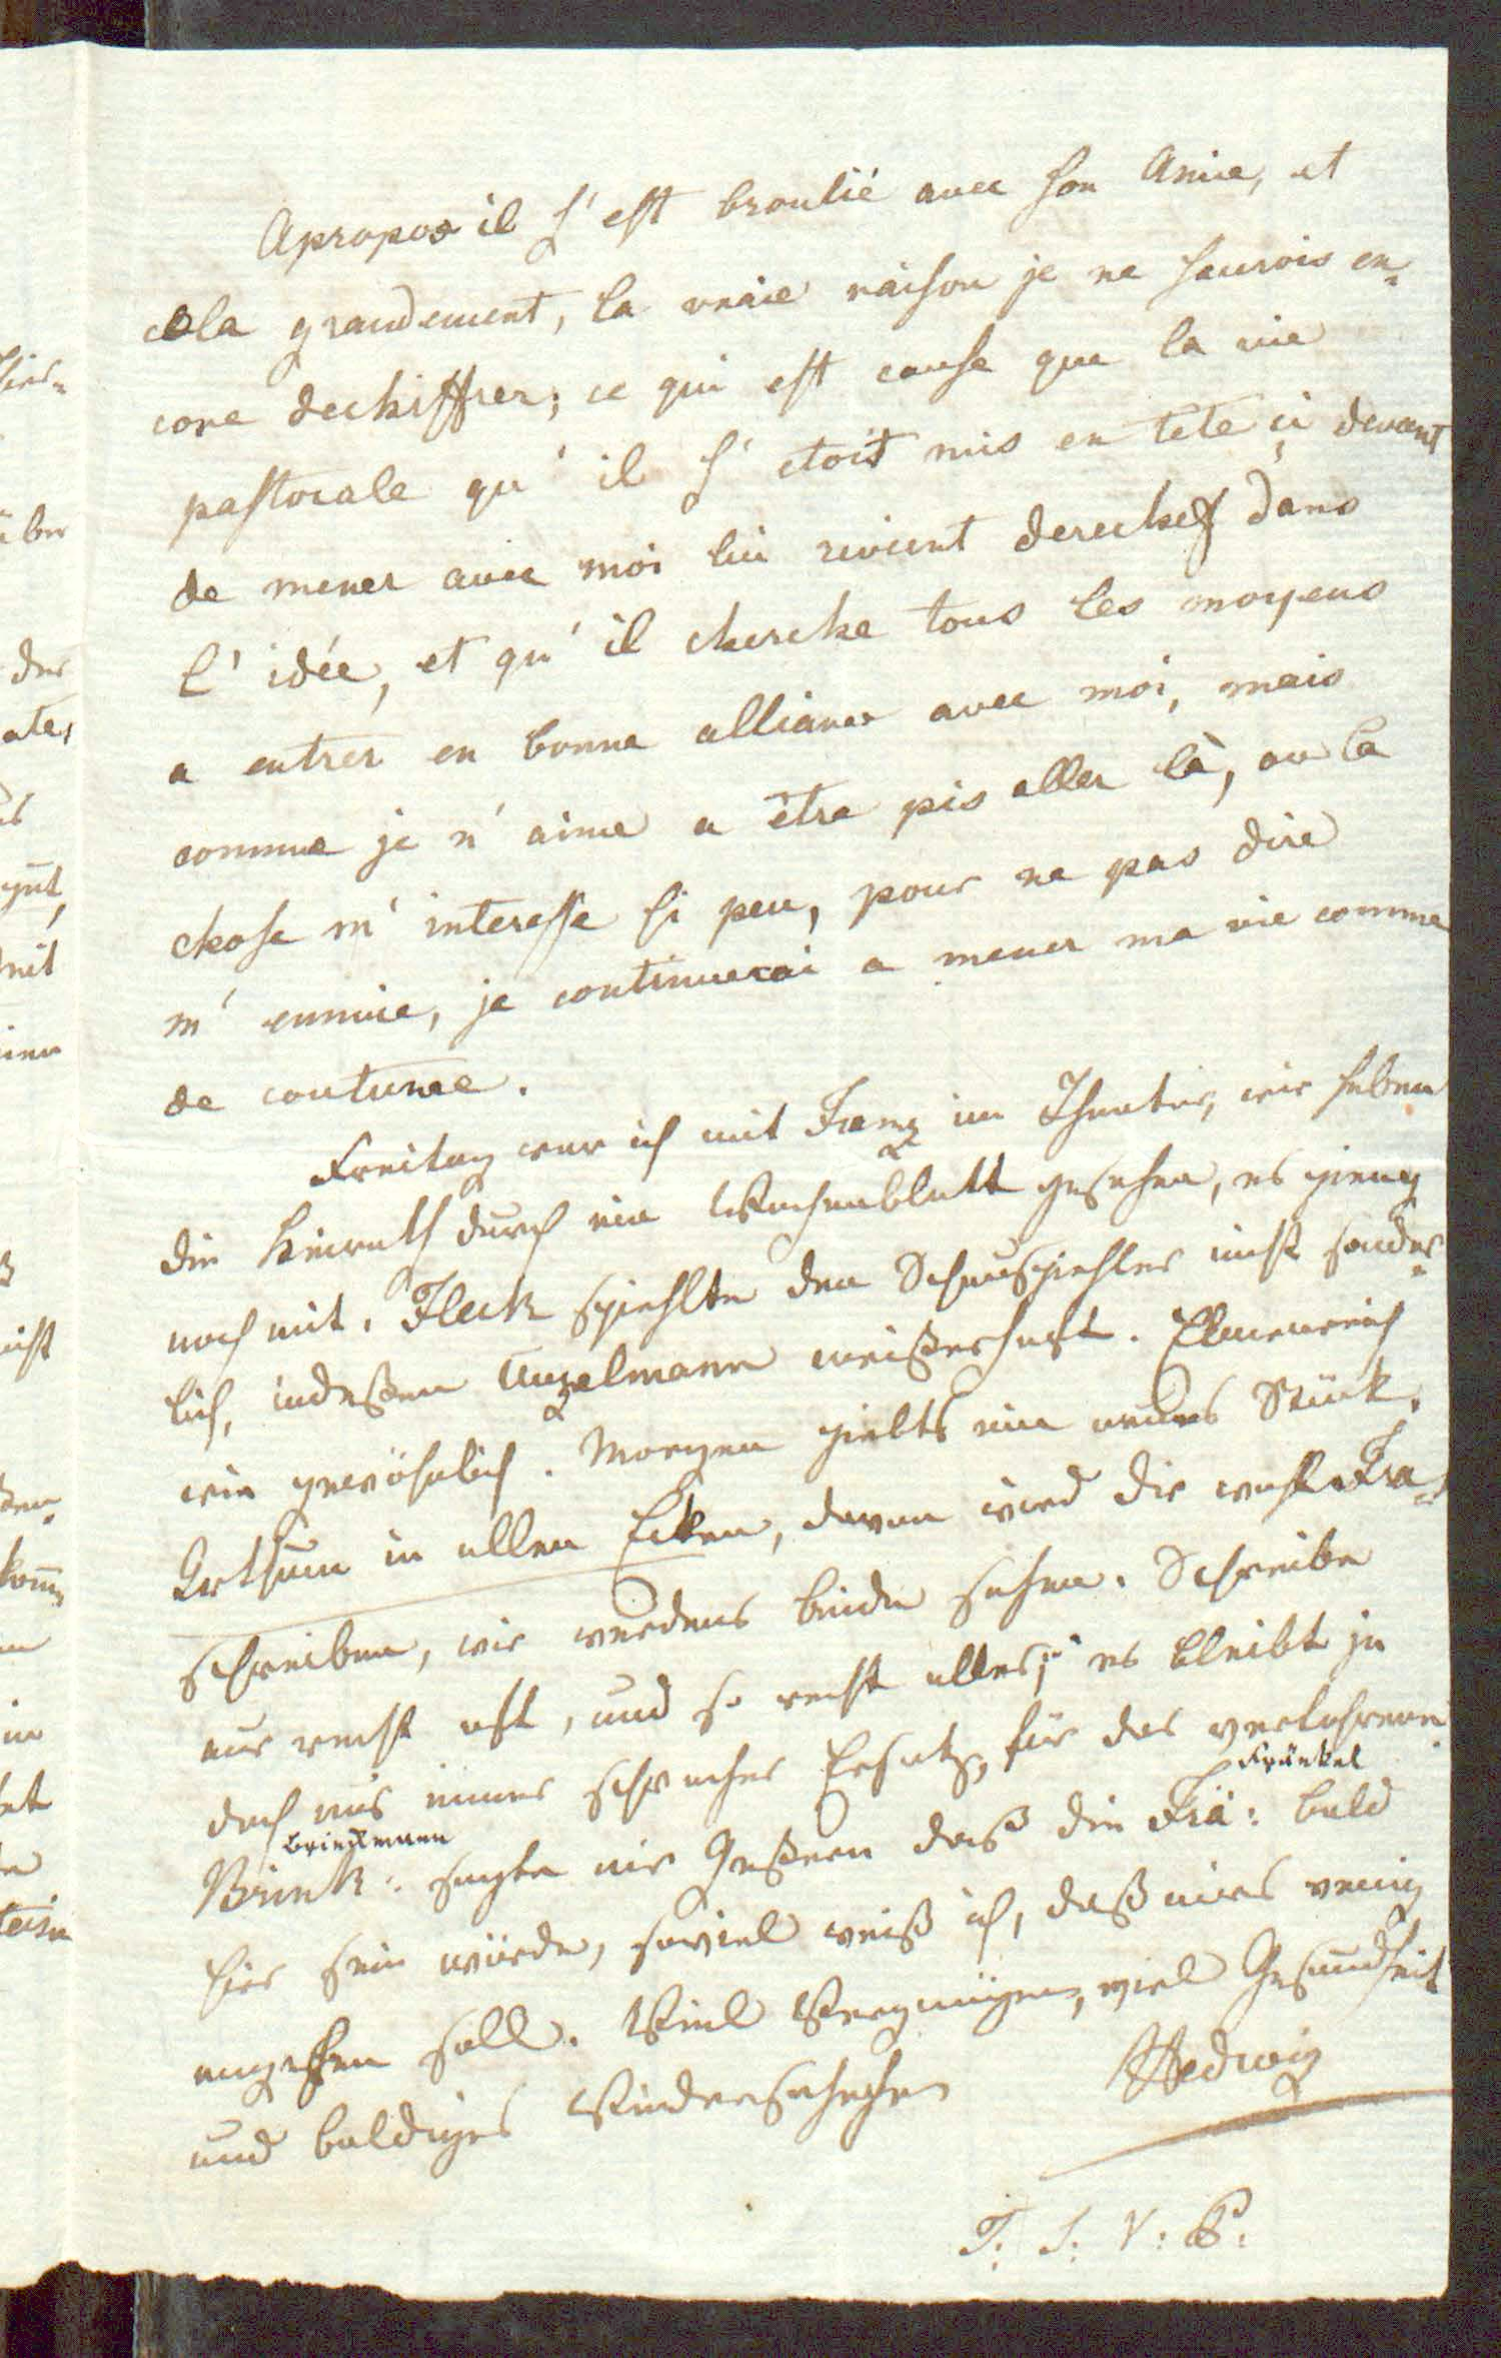 Apropos il s'est broulié avec son Amie, et
cela grandement, la vraie raison je ne saurois en=
core dechiffrer; ce qui est cause que la vie
pastorale qu'il s'etoit mis en tete çi devant
de mener avec moi lui revient derechef dans
l'idée, et qu'il cherche tous les moyens
a entrer en bonne alliance avec moi, mais
comme je n'aime a être pis aller là, ou la
chose m'interesse si peu, pour ne pas dire
m'ennuie, je continuerai a mener ma vie comme
de coutume.
Freitag war ich mit Franz im Theater, wir haben
die Heirath durch ein Wochenblatt gesehen, es gieng
noch mit. Fleck spiehlte den Schauspiehler nicht sonder=
lich, indeßen Unzelmann meisterhaft. Elmenreich
wie gewöhnlich. Morgen giebts ein neues Stück.
Irthum in allen Ecken, davon wird dir wohl Fra=
schreiben, wir werdens beide sehen. Schreibe
nur recht oft, und so recht alles; es bleibt ja
doch nur immer schwacher Ersatz, für das verlohrene.
Brinckmann Fränkel
Brink: sagte mir Gestern daß die Frä: bald
hier sein würde, soviel weiß ich, daß mirs wenig
angehen soll. Viel Vergnügen, viel Gesundheit
und baldiges Wiedersehehen Hedwig
T: S: V: P: